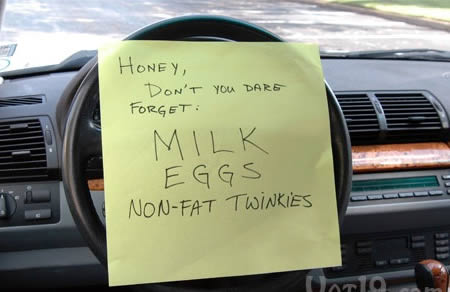 HONEY,
DON'T YOU DARE
FORGET:
MILK
EGGS
NON-FAT TWINKIES
Vat19.com